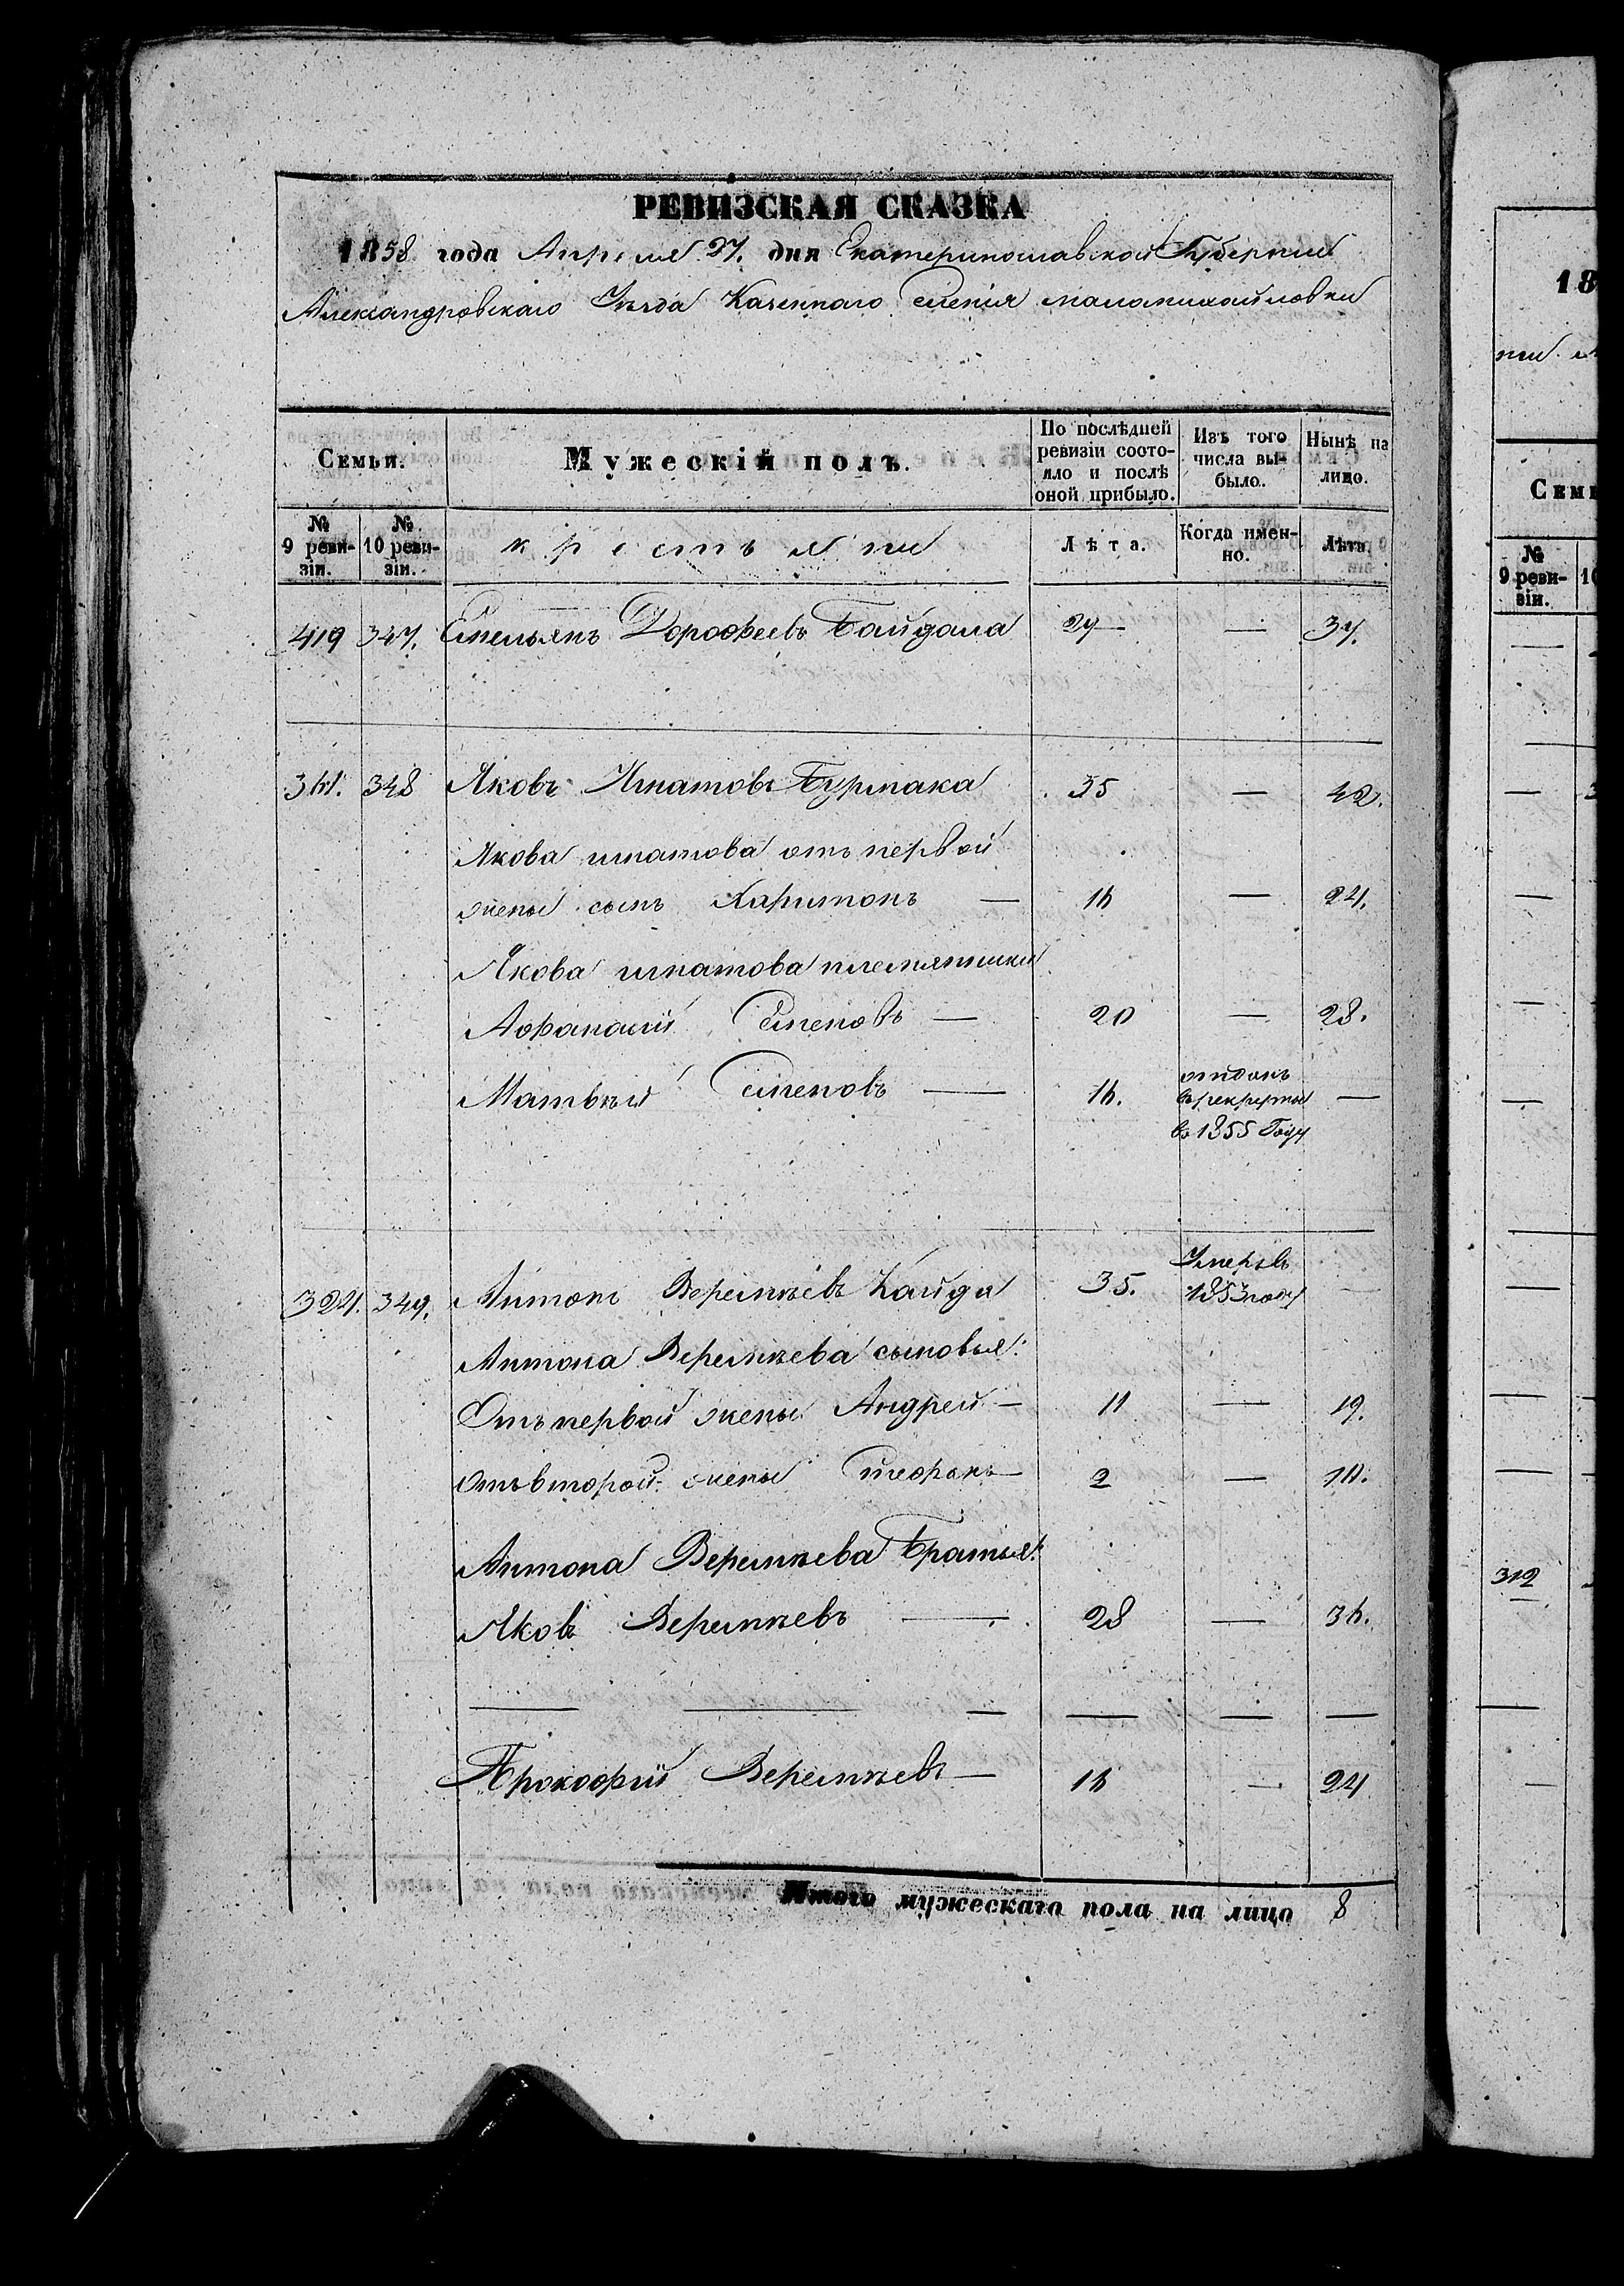 РЕВИЗСКАЯ СКАЗКА
1858 года Апреля 27. дня Екатеринославской Губернии
Александровскаго Уѣзда Казеннаго Селенія маламихайловки
Семьи.
Мужескій полъ.
По послѣдней ревизіи состояло и послѣ оной прибыло.
Изъ того числа выбыло.
Нынѣ на лицо.
№ 9 ревизіи.
№ 10 ревизіи.
крестьяни
Лѣта.
Когда именно.
Лѣта.
419 347. Емельянъ Дорофеевъ Байдала 29 — 37.
361. 348 Яковъ Игнатовъ Бурлака 35 — 42.
Якова игнатова отъ первой
жены сынъ Харитонъ — 16 — 24.
Якова игнатова племянники
Афанасій Семеновъ — 20 — 28.
Матвѣй Семеновъ — 16. отданъ въ рекруты въ 1855 Году —
324. 349. Антонъ Веремѣевъ Кайда 35. Умеръ въ 1853 году —
Антона Веремѣева сыновья:
Отъ первой жены Андрей — 11 — 19.
отъ второй жены Стефанъ — 2 — 10.
Антона Веремѣева Братья:
Яковъ Веремѣевъ — 28 — 36.
— — — — — —
Прокофій Веремѣевъ — 16 — 24
Итого мужескаго пола на лицо 8
18
Семь
№ 9 ревизіи.
10
312